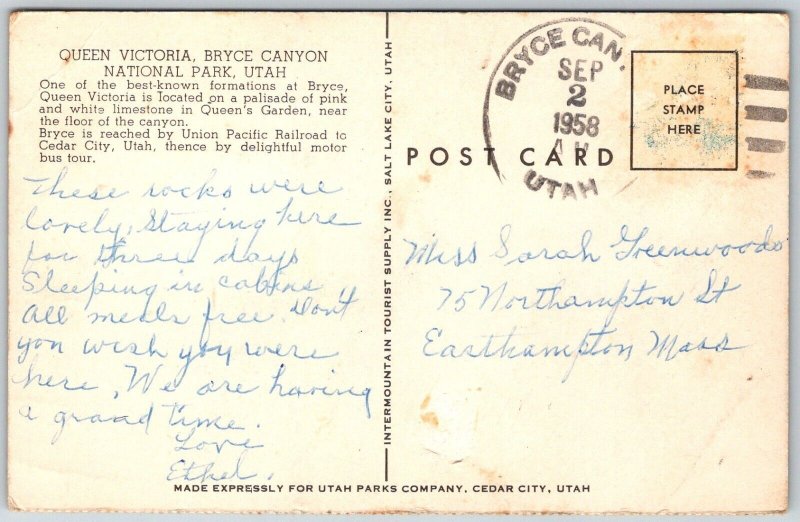 QUEEN VICTORIA, BRYCE CANYON
NATIONAL PARK, UTAH
One of the best-known formations at Bryce,
Queen Victoria is located on a palisade of pink
and white limestone in Queen's Garden, near
the floor of the canyon.
Bryce is reached by Union Pacific Railroad to
Cedar City, Utah, thence by delightful motor
bus tour.
These rocks were
lovely, Staying here
for three days
Sleeping in cabins
All meals free. Don't
you wish you were
here, We are having
a grand time.
Love
Ethel.
INTERMOUNTAIN TOURIST SUPPLY INC., SALT LAKE CITY, UTAH
POST CARD
BRYCE CAN.
SEP
2
1958
UTAH
PLACE
STAMP
HERE
Miss Sarah Greenwoods
75 Northampton St
Easthampton Mass
MADE EXPRESSLY FOR UTAH PARKS COMPANY, CEDAR CITY, UTAH